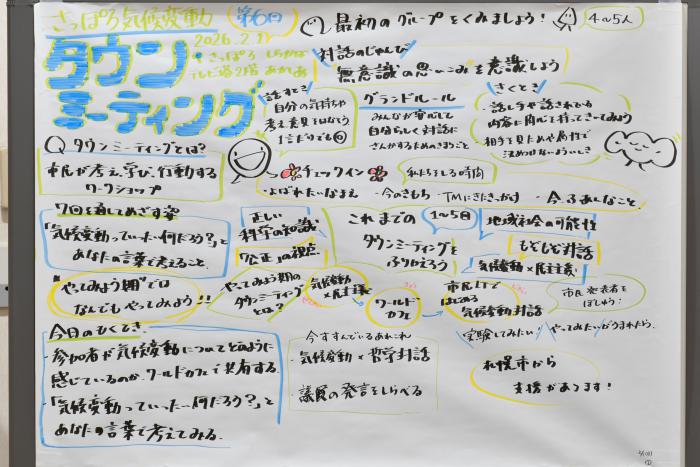 さっぽろ気候変動 第6回
タウン
ミーティング
2026.2.11
さっぽろ
テレビ塔2階
最初のグループをくみましょう!
4〜5人
対話のじゅんび
無意識の思いこみを意識しよう
話すとき
自分の気持ちや
考え、意見をはなそう
グランドルール
みんなが安心して
自分らしく対話に
さんかするためのきまりごと
きくとき
・話し方や話されている
内容に関心を持ってきいてみよう
相手を見ための属性で
決めつけないようにしよう
Q タウンミーティングとは?
市民が考え、学び、行動する
ワークショップ
チェックイン
・よばれたいなまえ
・今のきもち
・TMにきたきっかけ
7回を通してめざす姿
「気候変動っていったい何だろう?」と
あなたの言葉で考えること。
正しい
科学の知識
「公正」の視点
これまでの
1〜5回
タウンミーティングを
ふりかえろう
地域社会の可能性
もどもど対話
気候変動×民主主義
"やってみよう期"では
なんでもやってみよう!!
やってみよう期の
タウンミーティング
とは?
気候変動
×民主主義
ワールド
カフェ
市民1Tで
はじめる
気候変動対話
市民発表者を
ぼしゅう!
実験してみたい
やってみたいがうまれたら
今日のもくてき
・参加者が気候変動についてどのように
感じているのか、ワールドカフェで共有する
・「気候変動っていったい何だろう?」と
あなたの言葉で考えてみる。
今すすんでいるあれこれ
・気候変動×哲学対話
・議員の発言をしらべる
札幌市から
支援があります!